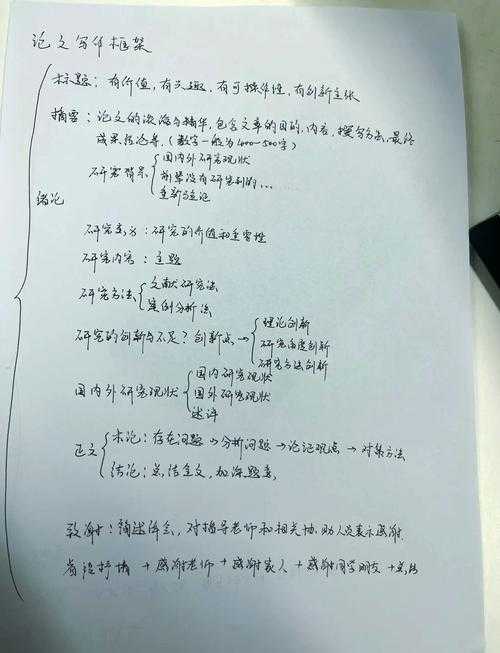 论文写作框架
标题：有价值，有兴趣，有可操作性，有创新主张
摘要：论文的浓缩与精华，包含文章的目的、内容、撰写方法、最终
成果、结论等，(数字一般为400-500字)
研究背景
国内外研究现状
前辈没有研究到的...
重新与忘记
绪论
研究意义：研究的价值和重要性
研究内容：主题
研究方法
文献研究法
案例分析法
研究的创新与不足？创新点→
理论创新
研究角度创新
研究方法创新
国内外研究现状
国内研究现状
国外研究现状
述评
正文
本论：存在问题→分析问题→论证观点→对策方法
结论：总结全文，加深题意，
致谢：简述体会，对指导老师和相关协助人员表示感谢
抒情+感谢老师+感谢家人+感谢同学朋友+总结